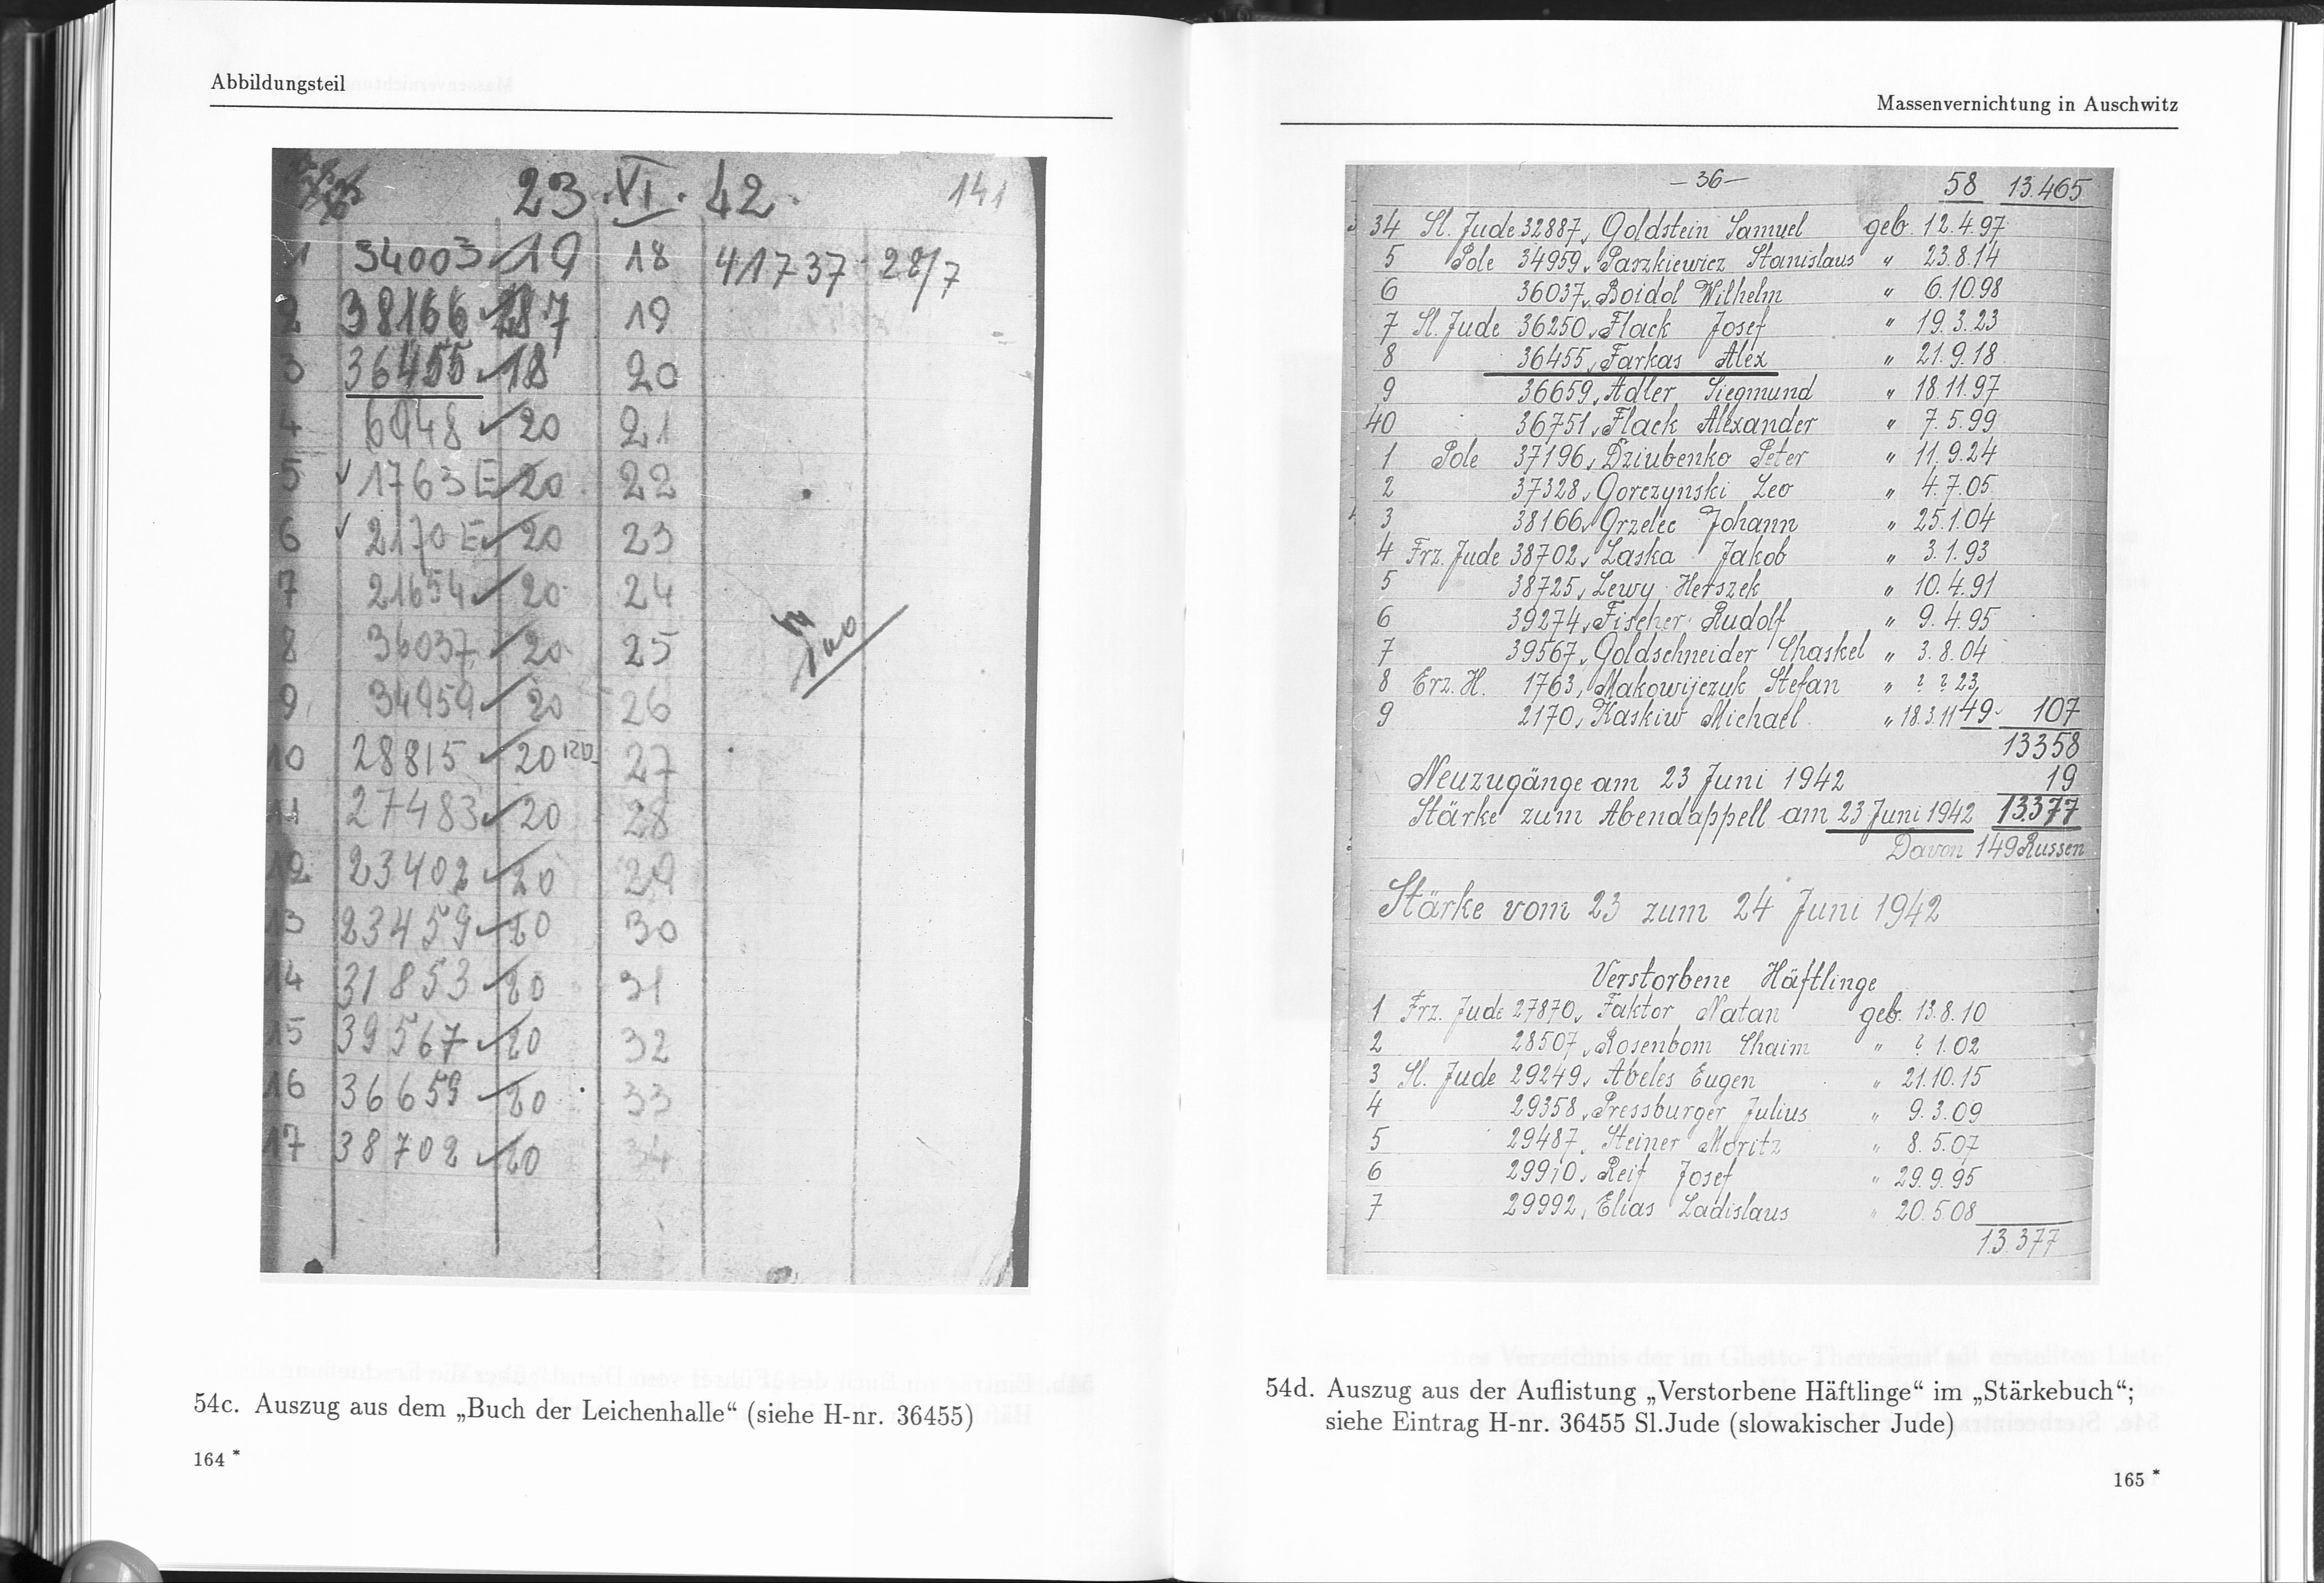 Abbildungsteil
23.VI.42. 141
1 34003 19 18 41737 28/7
2 38166 19
3 36455 18 20
4 6948 20 21
5 1763 E 20 22
6 2170 E 20 23
7 21654 20 24
8 36037 20 25
9 34959 20 26
10 28815 20 27
11 27483 20 28
12 23402 20 29
13 23459 20 30
14 31853 20 31
15 39567 20 32
16 36659 20 33
17 38702 20 34
54c. Auszug aus dem „Buch der Leichenhalle“ (siehe H-nr. 36455)
164 *
Massenvernichtung in Auschwitz
-36- 58 13.465
34 Sl. Jude 32887, Goldstein Samuel geb. 12.4.97
5 Pole 34959, Paszkiewicz Stanislaus " 23.8.14
6 36037, Boidol Wilhelm " 6.10.98
7 Sl. Jude 36250, Flack Josef " 19.3.23
8 36455, Farkas Alex " 21.9.18
9 36659, Adler Siegmund " 18.11.97
40 36751, Flack Alexander " 7.5.99
1 Pole 37196, Dziubenko Peter " 11.9.24
2 37328, Gorczynski Leo " 4.7.05
3 38166, Grzelec Johann " 25.1.04
4 Frz. Jude 38702, Laska Jakob " 3.1.93
5 38725, Lewy Herszek " 10.4.91
6 39274, Fischer Rudolf " 9.4.95
7 39567, Goldschneider Chaskel " 3.8.04
8 Erz. H. 1763, Makowijczuk Stefan " ? ? 23
9 2170, Kaskiw Michael " 18.3.11 49 107
13358
Neuzugänge am 23 Juni 1942 19
Stärke zum Abendappell am 23 Juni 1942 13377
Davon 149 Russen
Stärke vom 23 zum 24 Juni 1942
Verstorbene Häftlinge
1 Frz. Jude 27870, Faktor Natan geb. 13.8.10
2 28507, Rosenbom Chaim " ? 1.02
3 Sl. Jude 29249, Abeles Eugen " 21.10.15
4 29358, Pressburger Julius " 9.3.09
5 29487, Steiner Moritz " 8.5.07
6 29910, Reif Josef " 29.9.95
7 29992, Elias Ladislaus " 20.5.08
13.377
54d. Auszug aus der Auflistung „Verstorbene Häftlinge“ im „Stärkebuch“;
siehe Eintrag H-nr. 36455 Sl.Jude (slowakischer Jude)
165 *